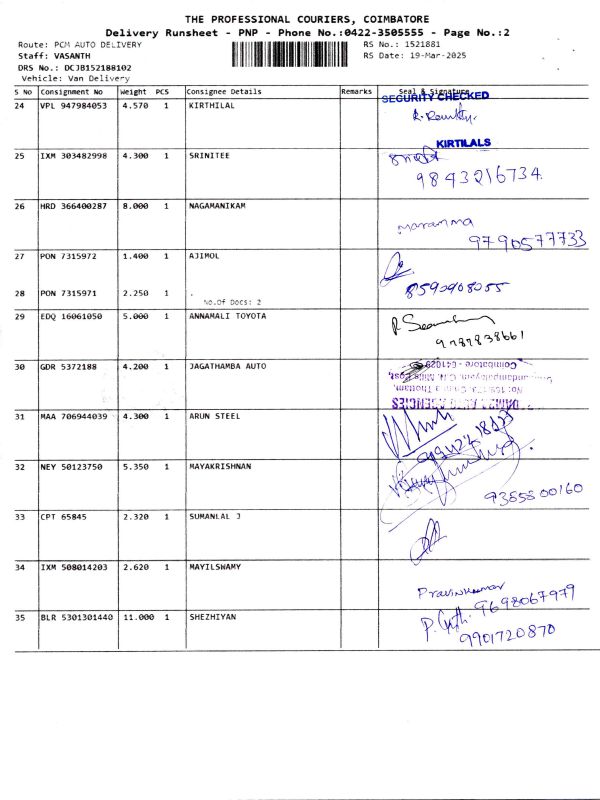 THE PROFESSIONAL COURIERS, COIMBATORE
Delivery Runsheet - PNP - Phone No.:0422-3505555 - Page No.:2
Route: PCM AUTO DELIVERY
RS No.: 1521881
Staff: VASANTH
RS Date: 19-Mar-2025
DRS No.: DCJB152188102
Vehicle: Van Delivery
S No Consignment No Weight PCS Consignee Details Remarks Seal & Signature
SECURITY CHECKED
24 VPL 947984053 4.570 1 KIRTHILAL
KIRTILALS
25 IXM 303482998 4.300 1 SRINITEE
9843216734
26 HRD 366400287 8.000 1 NAGAMANIKAM
maramma
9790577733
27 PON 7315972 1.400 1 AJIMOL
28 PON 7315971 2.250 1 .
8590908055
No.Of Docs: 2
29 EDQ 16061050 5.000 1 ANNAMALI TOYOTA
9787838661
30 GDR 5372188 4.200 1 JAGATHAMBA AUTO
Coimbatore - 641029
31 MAA 706944039 4.300 1 ARUN STEEL
32 NEY 50123750 5.350 1 MAYAKRISHNAN
9385800160
33 CPT 65845 2.320 1 SUMANLAL J
34 IXM 508014203 2.620 1 MAYILSWAMY
Pravinkumar
9698067979
35 BLR 5301301440 11.000 1 SHEZHIYAN
9901720870